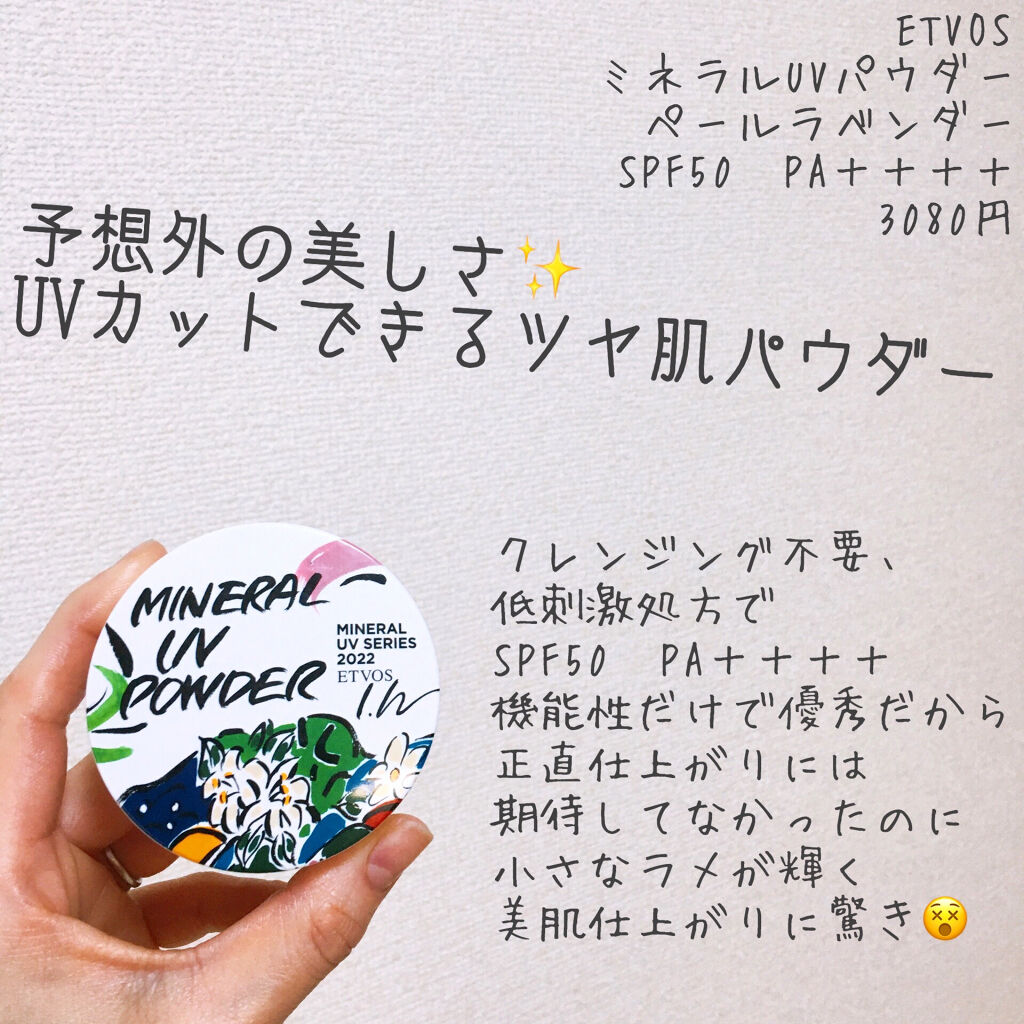 ETVOS
ミネラルUVパウダー
ペールラベンダー
SPF50 PA++++
3080円
予想外の美しさ✨
UVカットできるツヤ肌パウダー
クレンジング不要、
低刺激処方で
SPF50 PA++++
機能性だけで優秀だから
正直仕上がりには
期待してなかったのに
小さなラメが輝く
美肌仕上がりに驚き😵
MINERAL
UV
POWDER
MINERAL
UV SERIES
2022
ETVOS